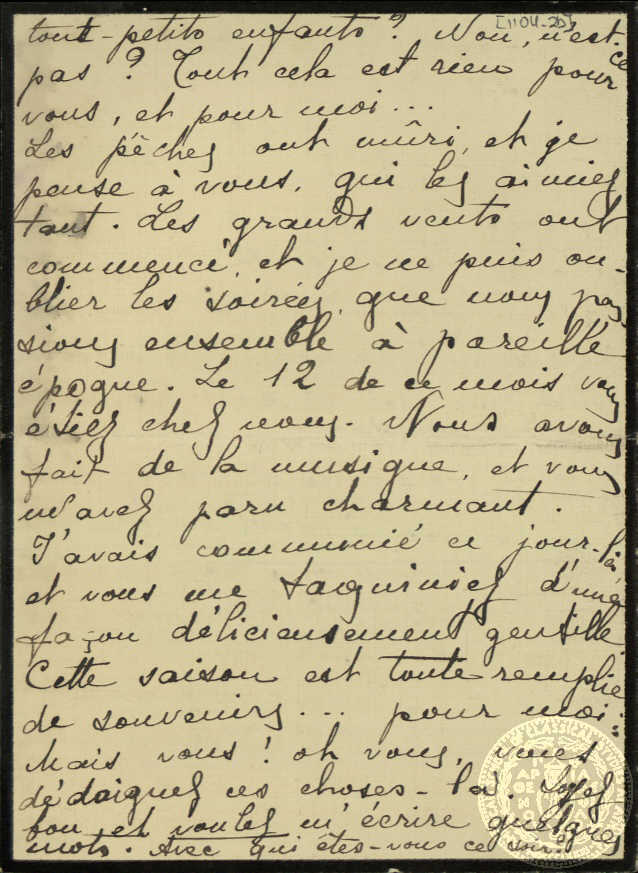 [1104-26]
tout-petits enfants? Non, n'est-ce
pas? Tout cela est rien pour
vous, et pour moi...
Les pêches ont mûri, et je
pense à vous, qui les aimiez
tant. Les grands vents ont
commencé, et je ne puis ou-
blier les soirées que nous pas-
sions ensemble à pareille
époque. Le 12 de ce mois vous
étiez chez nous. Nous avons
fait de la musique, et vous
m'avez paru charmant.
J'avais communié ce jour-là
et vous me taquiniez d'une
façon délicieusement gentille
Cette saison est toute remplie
de souvenirs... pour moi:
Mais vous! oh vous, vous
dédaignez ces choses-là. Soyez
bon et voulez m'écrire quelques
mots. Avec qui êtes-vous ce soir?